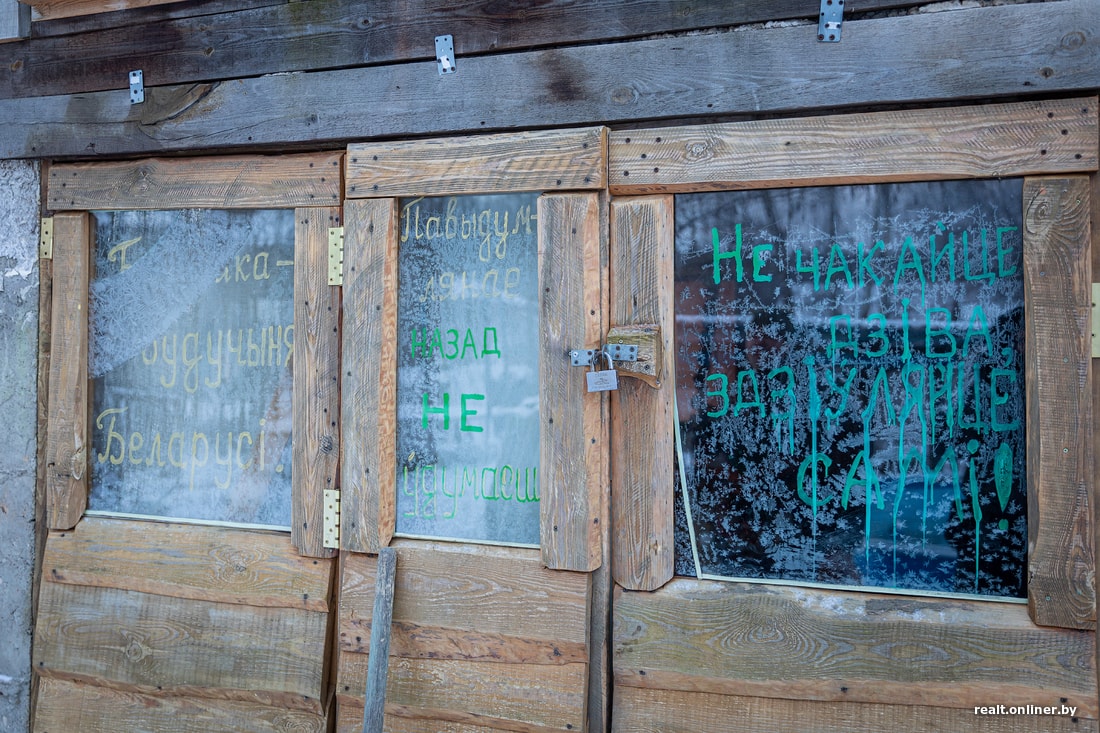 будучыня
Беларусі.
Павыдум-
ляюць
НАЗАД
НЕ
ўдумаеш
Не ЧАКАЙЦЕ
ДЗІВА,
ЗДЗІЎЛЯЙЦЕ
САМІ!
realt.onliner.by